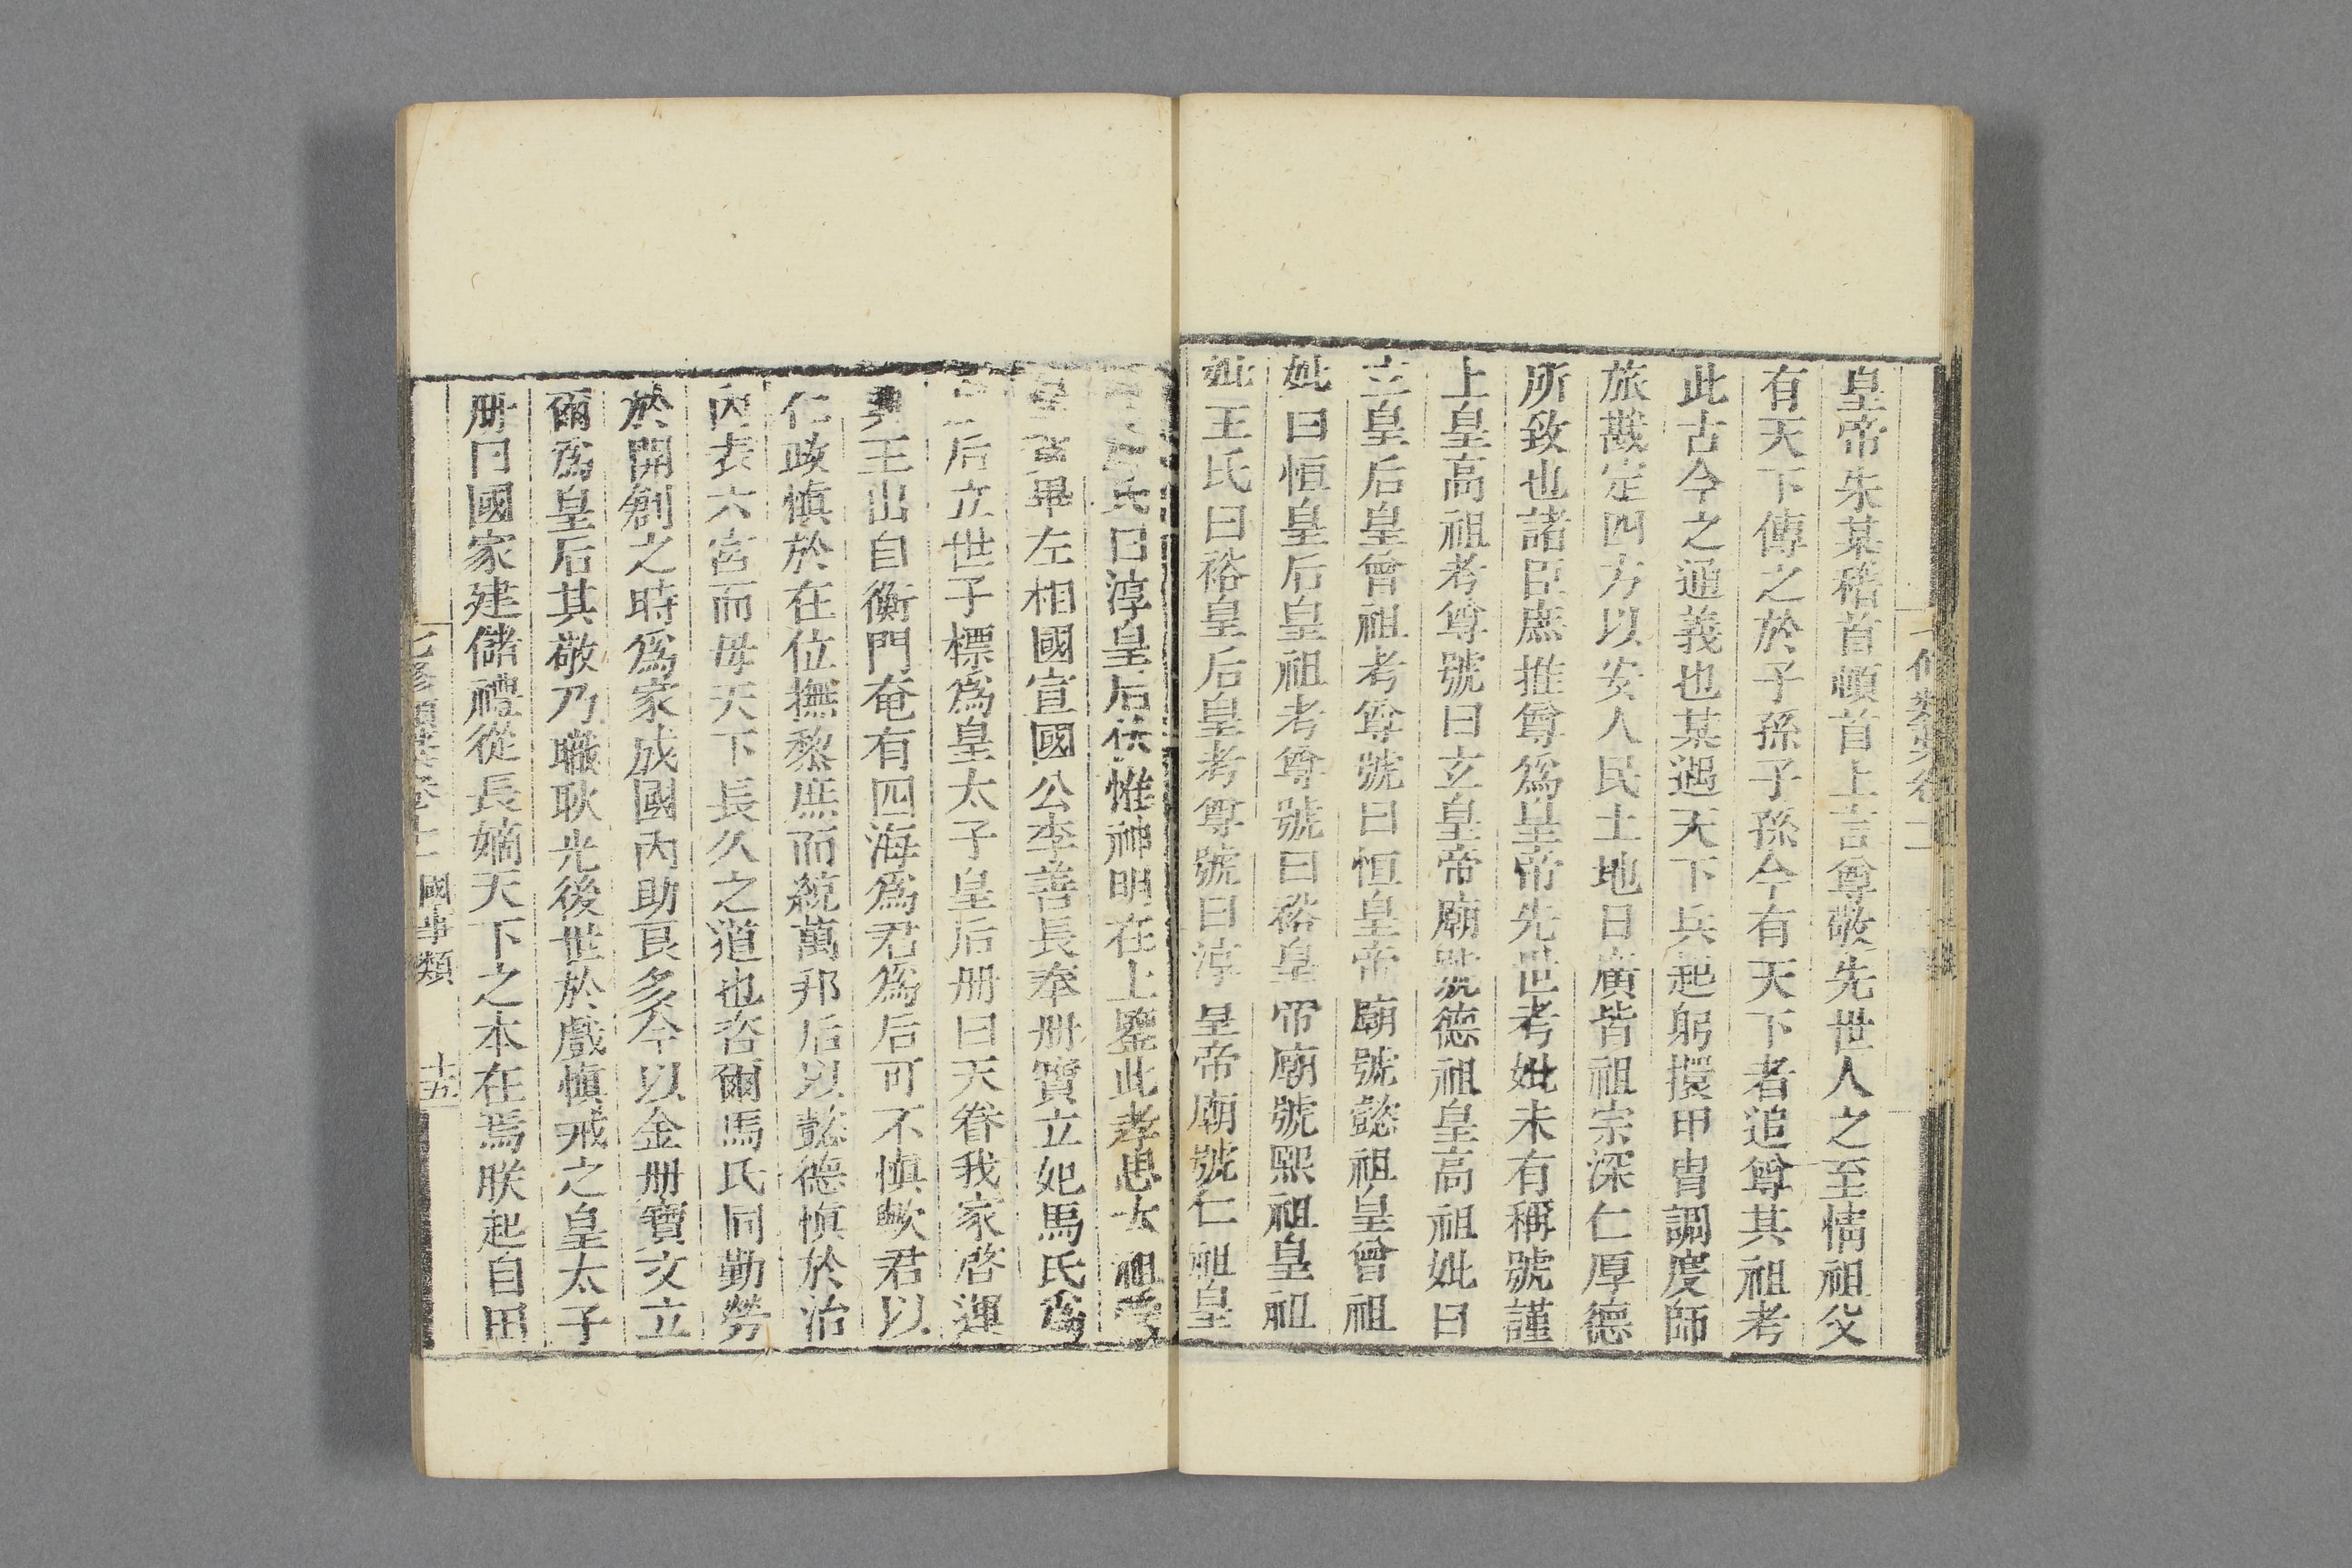 皇帝朱某稽首頓首上言尊敬先世人之至情祖父
有天下傳之於子孫子孫今有天下者追尊其祖考
此古今之通義也某遇天下兵起躬擐甲冑調度師
旅戡定四方以安人民土地日廣皆祖宗深仁厚德
所致也諸臣庶推尊爲皇帝先世考妣未有稱號謹
上皇高祖考尊號曰玄皇帝廟號德祖皇高祖妣曰
玄皇后皇曾祖考尊號曰恒皇帝廟號懿祖皇曾祖
妣曰恒皇后皇祖考尊號曰裕皇帝廟號熙祖皇祖
妣王氏曰裕皇后皇考尊號曰淳皇帝廟號仁祖皇
氏曰淳皇后伏惟神明在上鑒此孝思太祖
畢左相國宣國公李善長奉册寶立妃馬氏爲
后立世子標爲皇太子皇后册曰天眷我家啓運
興王出自衡門奄有四海爲君爲后可不愼歟君以
仁政愼於在位撫黎庶而統萬邦后以懿德愼於治
內表六宮而母天下長久之道也咨爾馬氏同勤勞
於開創之時爲家成國內助良多今以金册寶文立
爾爲皇后其敬乃職耿光後世於戲愼戒之皇太子
册曰國家建儲禮從長嫡天下之本在焉朕起自田
七修類藁卷十一 國事類 十五